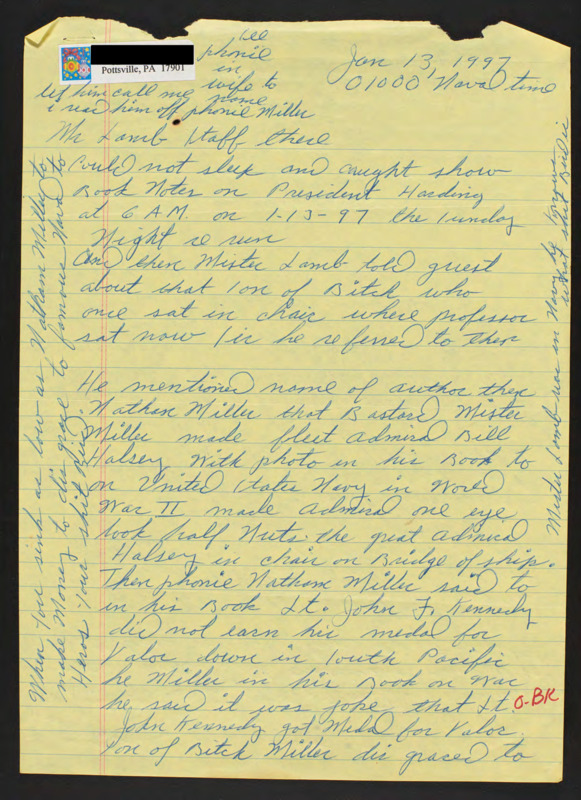 Pottsville, PA 17901
see
phonie
in
wife to
name
let him call me
i read him off phonie Miller
Jan 13, 1997
01000 Naval time
Mr Lamb Staff there
Could not sleep and caught show
Book Notes on President Harding
at 6 A.M. on 1-13-97 the Sunday
Night re run
And then Mister Lamb told guest
about that son of Bitch who
once sat in chair where professor
sat now Sir he referred to then
He mentioned name of author then
Nathan Miller that Bastard Mister
Miller made fleet admiral Bill
Halsey with photo in his Book to
on United States Navy in World
War II made admiral one eye
look half Nuts. the great admiral
Halsey in chair on Bridge of ship.
Then phonie Nathan Miller said to
in his Book Lt. John F. Kennedy
did not earn his medal for
Valor down in South Pacific
he Miller in his Book on War
he said it was joke that Lt.
John Kennedy got Medal for Valor.
Son of Bitch Miller dis graced to
O-BK
When you sink as low as Nathan Miller to
make Money to dis grace to famous Naval to
Heros your shit Bird.
Mister Lamb was in Navy he knows
what shit Bird is